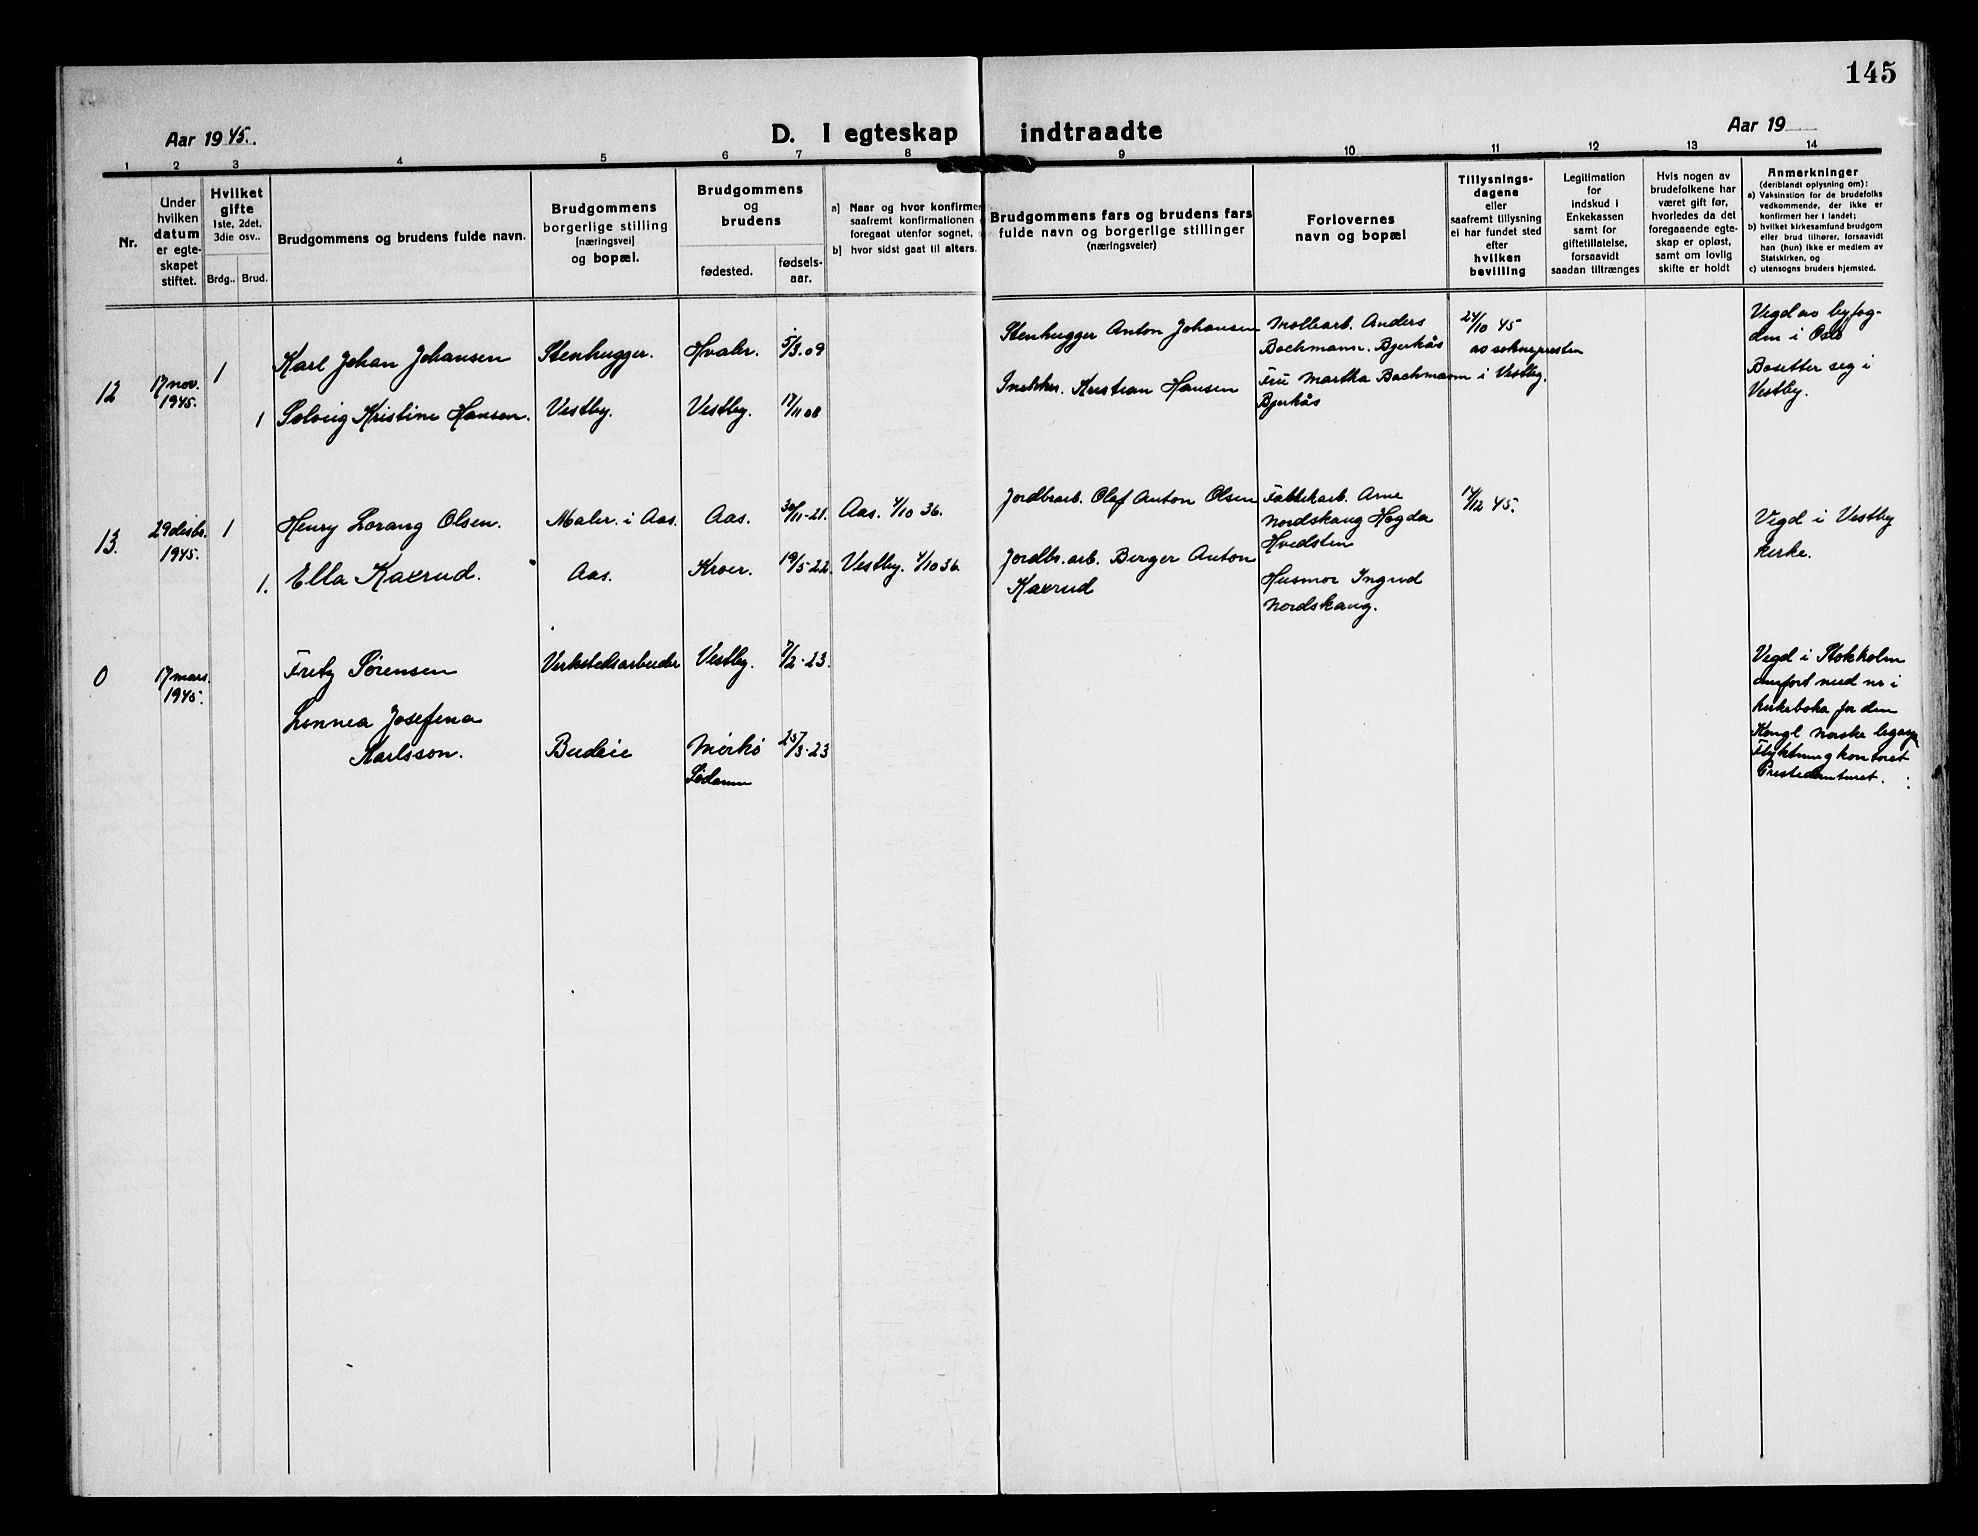 145
Aar 1945.
D. I egteskap indtraadte
Aar 19
1 2 3 4 5 6 7 8 9 10 11 12 13 14
Nr.
Under
hvilken
datum
er egte-
skapet
stiftet.
Hvilket
gifte
1ste, 2det,
3die osv..
Brdg.. Brud.
Brudgommens og brudens fulde navn.
Brudgommens
borgerlige stilling
(næringsvei)
og bopæl.
Brudgommens
og
brudens
fødested.
fødsels-
aar.
a) Naar og hvor konfirmer
saafremt konfirmationen
foregaat utenfor sognet,
b) hvor sidst gaat til alters.
Brudgommens fars og brudens fars
fulde navn og borgerlige stillinger
(næringsveier)
Forlovernes
navn og bopæl
Tillysnings-
dagene
eller
saafremt tillysning
ei har fundet sted
efter
hvilken
bevilling
Legitimation
for
indskud i
Enkekassen
samt for
giftetillatelse,
forsaavidt
saadan tiltrænges
Hvis nogen av
brudefolkene har
været gift før,
hvorledes da det
foregaaende egte-
skap er opløst,
samt om lovlig
skifte er holdt
Anmerkninger
(deriblandt oplysning om):
a) Vaksination for de brudefolks
vedkommende, der ikke er
konfirmert her i landet;
b) hvilket kirkesamfund brudgom
eller brud tilhører, forsaavidt
han (hun) ikke er medlem av
Statskirken, og
c) utensogns bruders hjemsted.
12
17 nov.
1945.
1
Karl Johan Johansen
Stenhugger.
Hvaler.
5/3.09
Stenhugger Anton Johansen
Anders
Bachmann. Bjerkås
24/10 45
av soknepresten
i Vestby.
Vegd av byfog-
den i Oslo
Bosetter seg i
Vestby.
1
Solveig Kristine Hansen.
Vestby.
Vestby.
17/11 08
Kristian Hansen
Fru Martha Bachmann
Bjerkås
13.
29 desbr.
1945.
1
Henry Lorang Olsen.
Maler. i Aas.
Aas.
30/11-21.
Aas. 4/10 36.
Jordbrarb. Olaf Anton Olsen
Fabrikarb. Arne
Nordskaug Hogda
Hvidsten
14/12 45.
Vegd i Vestby
kirke.
1.
Ella Kaxrud.
Aas.
Kroer.
19/5-22.
Vestby. 4/10 36.
Jordbr.arb. Berger Anton
Kaxrud
Husmor Ingrid
Nordskaug.
0
17 mars.
1945.
Fritz Sørensen
Verkstedsarbeider
Vestby.
7/2-23.
Vegd i Stokholm
omfort med nr i
kirkeboka for den
Kongl norske legasj
Flyktningkontoret
Linnea Josefina
Karlsson.
Budeie
Mørkø
25/3-23